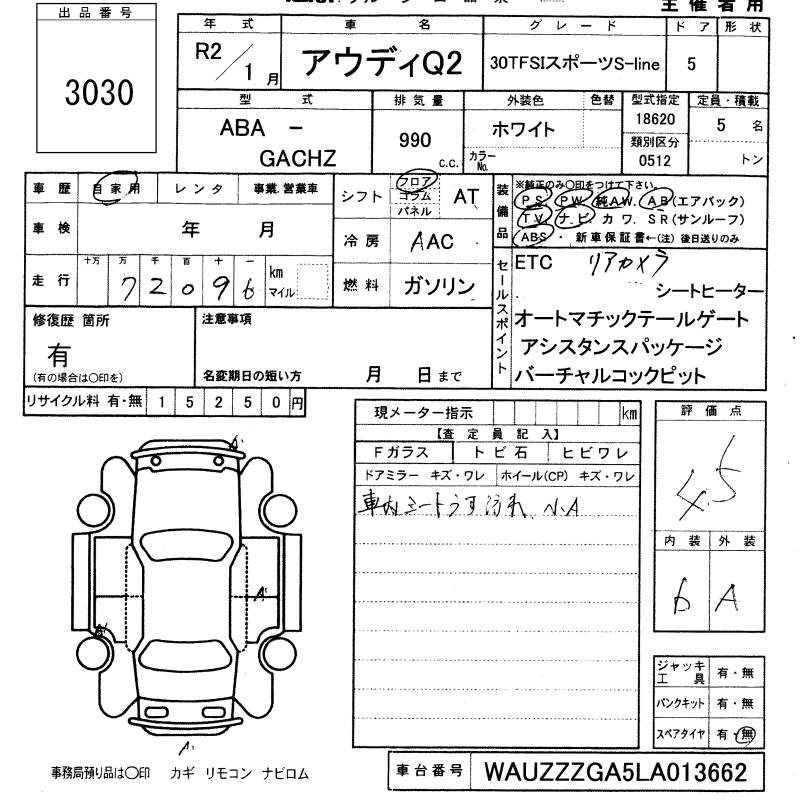 主催者用
出品番号
3030
年式 車名 グレード ドア 形状
R2/1月 アウディQ2 30TFSIスポーツS-line 5
型式 排気量 外装色 色替 型式指定 定員・積載
ABA - GACHZ 990 c.c. ホワイト カラーNo. 18620 5名
類別区分
0512 トン
車歴 自家用 レンタ 事業.営業車
車検 年 月
走行 十万 万 千 百 十 一 km マイル
72096
シフト フロア コラム パネル AT
冷房 AAC
燃料 ガソリン
装備品
※純正のみ〇印をつけて下さい。
PS PW 純AW. AB(エアバック)
TV ナビ カワ. SR(サンルーフ)
ABS・ 新車保証書←(注) 後日送りのみ
セールスポイント
ETC リアカメラ
シートヒーター
オートマチックテールゲート
アシスタンスパッケージ
バーチャルコックピット
修復歴 箇所
有
(有の場合は〇印を)
注意事項
名変期日の短い方 月 日まで
リサイクル料 有・無 15250円
現メーター指示 km
【査定員記入】
Fガラス トビ石 ヒビワレ
ドアミラー キズ・ワレ ホイール(CP) キズ・ワレ
車内シートうす汚れ、小A
評価点
4.5
内装 外装
b A
A'
A'
A'
A'
ジャッキ工具 有・無
パンクキット 有・無
スペアタイヤ 有・無
事務局預り品は〇印 カギ リモコン ナビロム
車台番号 WAUZZZGA5LA013662